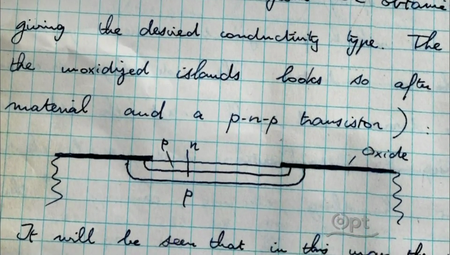 obtaine
giving the desired conductivity type. The
the unoxidized islands looks so after
material and a p-n-p transistor) :
p n
oxide
p
opt
It will be seen that in this way the